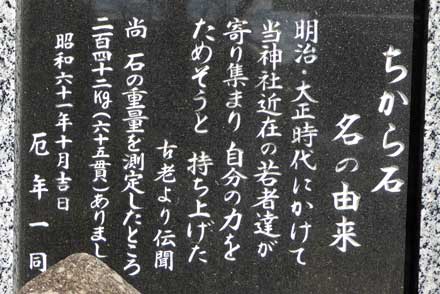 ちから石
名の由来
明治・大正時代にかけて
当神社近在の若者達が
寄り集まり 自分の力を
ためそうと 持ち上げた
古老より伝聞
尚 石の重量を測定したところ
二百四十二kg(六十五貫)ありまし
昭和六十一年十月吉日
厄年一同